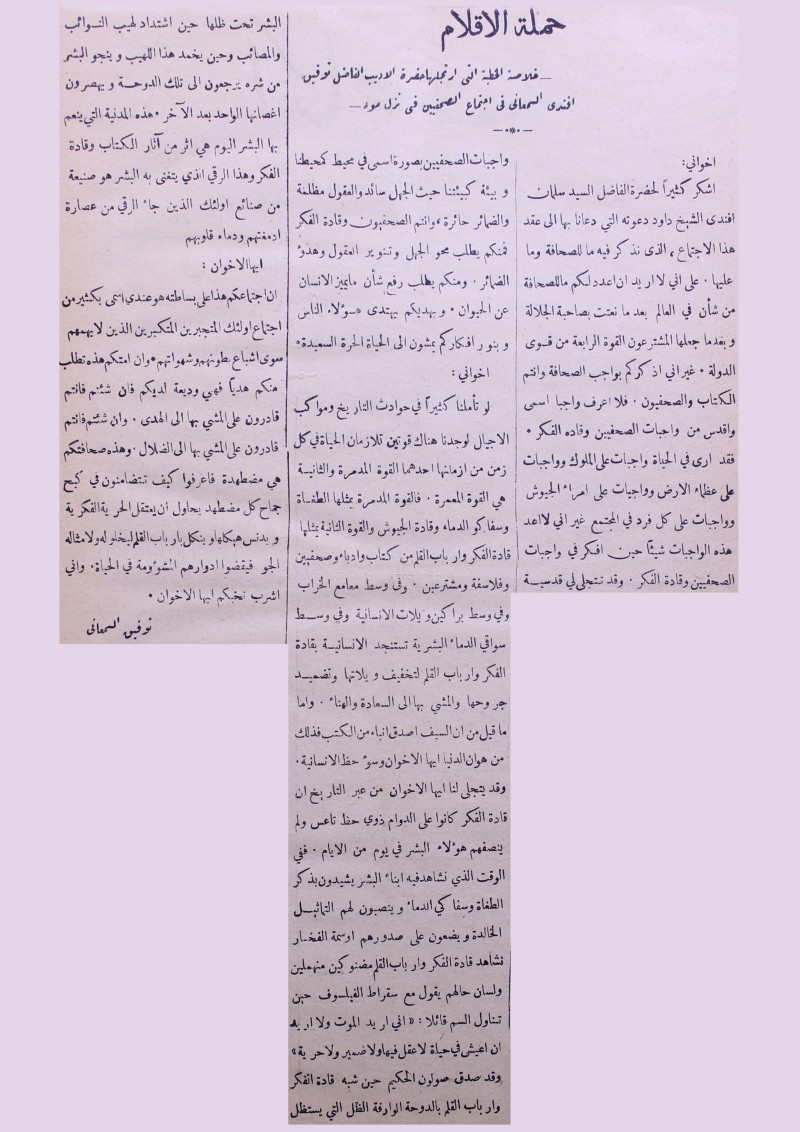 حملة الاقلام
— خلاصة الخطبة التي ارتجلها حضرة الاديب الفاضل توفيق
افندي السمعاني في اجتماع الصحفيين في نزل مود —
اخواني:
اشكر كثيراً لحضرة الفاضل السيد سلمان
افندي الشيخ داود دعوته التي دعانا بها الى عقد
هذا الاجتماع، الذي نذكر فيه ما للصحافة وما
عليها . على اني لا اريد ان اعدد لكم ما للصحافة
من شأن في العالم بعد ما نعتت بصاحبة الجلالة
وبعدما جعلها المشترعون القوة الرابعة من قوى
الدولة . غير اني اذكركم بواجب الصحافة وانتم
الكتاب والصحفيون . فلا اعرف واجبا اسمى
واقدس من واجبات الصحفيين وقاده الفكر .
فقد ارى في الحياة واجبات على الملوك وواجبات
على عظماء الارض وواجبات على امراء الجيوش
وواجبات على كل فرد في المجتمع غير اني لا اعد
هذه الواجبات شيئاً حين افكر في واجبات
الصحفيين وقادة الفكر . وقد تتجلى لي قدسية
واجبات الصحفيين بصورة اسمى في محيط كمحيطنا
وبيئة كبيئتنا حيث الجهل سائد والعقول مظلمة
والضمائر حائرة، وانتم الصحفيون وقادة الفكر
فمنكم يطلب محو الجهل وتنوير العقول وهدؤ
الضمائر . ومنكم يطلب رفع شأن مايميز الانسان
عن الحيوان . وبهديكم يهتدى هؤلاء الناس
وبنور افكاركم يمشون الى الحياة الحرة السعيدة .
اخواني:
لو تأملنا كثيراً في حوادث التاريخ ومواكب
الاجيال لوجدنا هناك قوتين تلازمان الحياة في كل
زمن من ازمانها احدهما القوة المدمرة والثانية
هي القوة المعمرة . فالقوة المدمرة يمثلها الطغاة
وسفاكو الدماء وقادة الجيوش والقوة الثانية يمثلها
قادة الفكر وارباب القلم من كتاب وادباء وصحفيين
وفلاسفة ومشترعين . وفي وسط معامع الخراب
وفي وسط براكين ويلات الانسانية وفي وسط
سواقي الدماء البشرية تستنجد الانسانية بقادة
الفكر وارباب القلم لتخفيف ويلاتها وتضميد
جروحها والمشي بها الى السعادة والهناء . واما
ما قيل من ان السيف اصدق انباء من الكتب فذلك
من هوان الدنيا ايها الاخوان وسوء حظ الانسانية .
وقد يتجلى لنا ايها الاخوان من عبر التاريخ ان
قادة الفكر كانوا على الدوام ذوي حظ تاعس ولم
ينصفهم هؤلاء البشر في يوم من الايام . ففي
الوقت الذي نشاهد فيه ابناء البشر يشيدون بذكر
الطغاة وسفاكي الدماء وينصبون لهم التماثيل
الخالدة ويضعون على صدورهم اوسمة الفخار
نشاهد قادة الفكر وارباب القلم مضنوكين منهملين
ولسان حالهم يقول مع سقراط الفيلسوف حين
تناول السم قائلا : «اني اريد الموت ولا اريد
ان اعيش في حياة لا عقل فيها ولا ضمير ولا حرية»
وقد صدق صولون الحكيم حين شبه قادة الفكر
وارباب القلم بالدوحة الوارفة الظل التي يستظل
البشر تحت ظلها حين اشتداد لهيب النوائب
والمصائب وحين يخمد هذا اللهيب وينجو البشر
من شره يرجعون الى تلك الدوحة ويهصرون
اغصانها الواحد بعد الآخر . هذه المدنية التي ينعم
بها البشر اليوم هي اثر من آثار الكتاب وقادة
الفكر وهذا الرقي الذي يتغنى به البشر هو صنيعة
من صنائع اولئك الذين جاء الرقي من عصارة
ادمغتهم ودماء قلوبهم
ايها الاخوان :
ان اجتماعكم هذا على بساطته هو عندي اسمى بكثير من
اجتماع اولئك المتجبرين المتكبرين الذين لا يهمهم
سوى اشباع بطونهم وشهواتهم . وان امتكم هذه تطلب
منكم هدياً فهي وديعة لديكم فان شئتم فانتم
قادرون على المشي بها الى الهدى . وان شئتم فانتم
قادرون على المشي بها الى الضلال . وهذه صحافتكم
هي مضطهدة فاعرفوا كيف تتضامنون في كبح
جماح كل مضطهد يحاول ان يعتقل الحرية الفكرية
ويدنس هيكلها وينكل بارباب القلم ليخلو له ولامثاله
الجو فيقضوا ادوارهم المشؤومة في الحياة . واني
اشرب نخبكم ايها الاخوان .
توفيق السمعاني